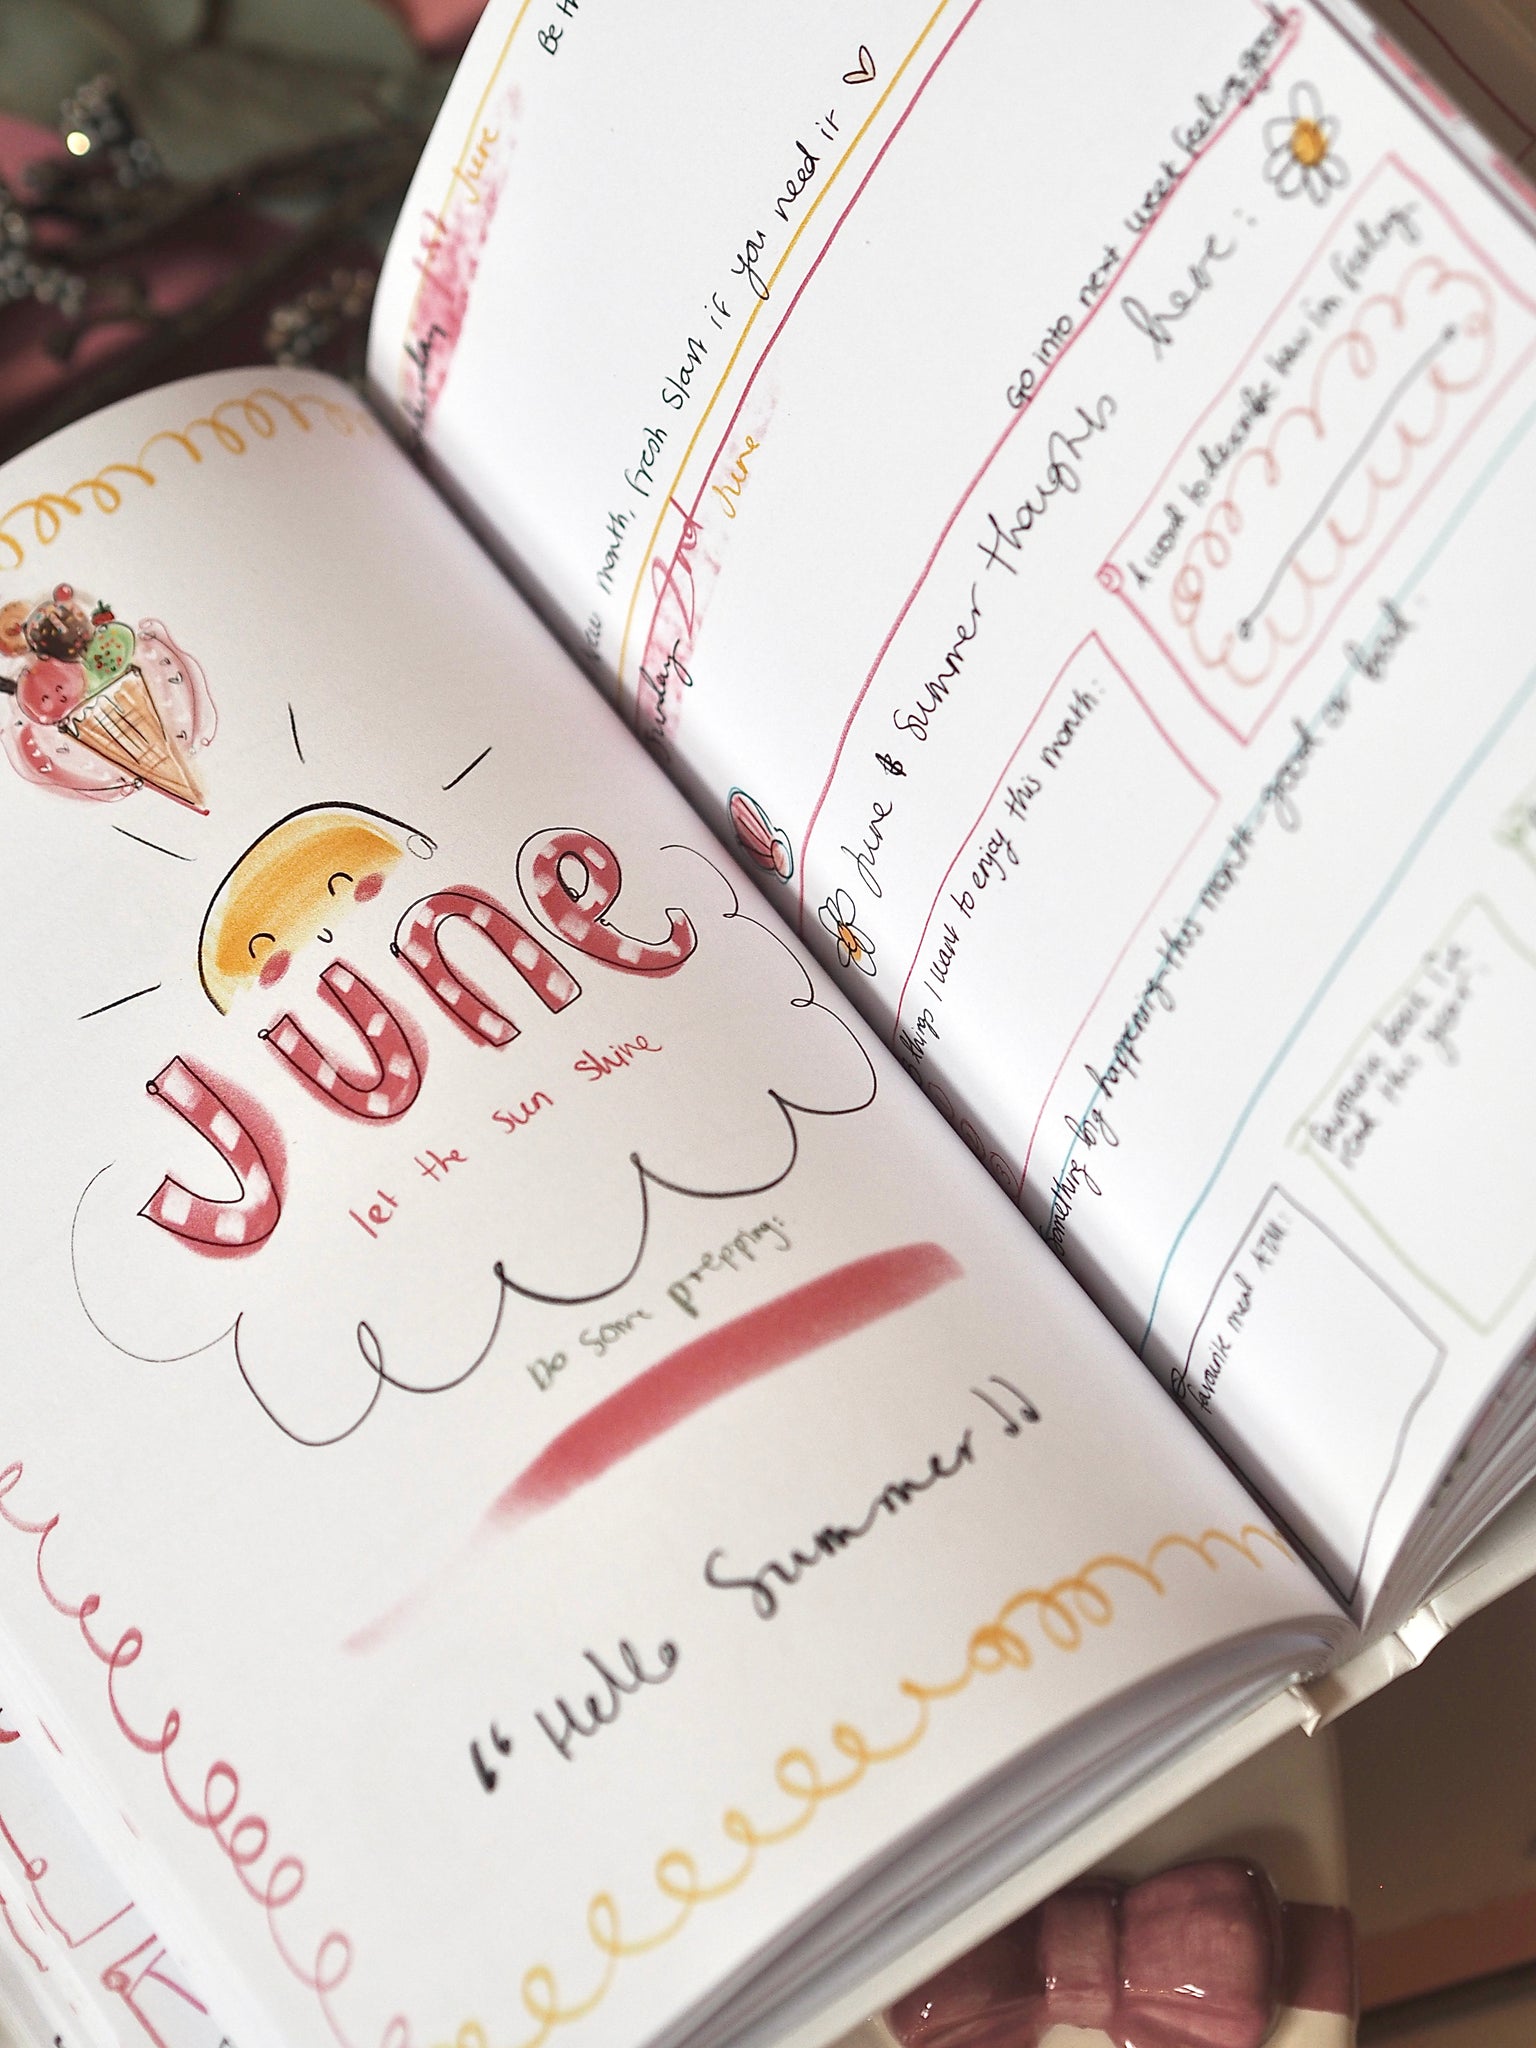 June
let the sun shine
Do some prepping:
"Hello Summer"
1st June
month, fresh start if you need it
Sunday 2nd June
Go into next week feeling good
June & Summer thoughts here:
things I want to enjoy this month:
A word to describe how im feeling:
Something big happening this month - good or bad:
favourite meal ATM: